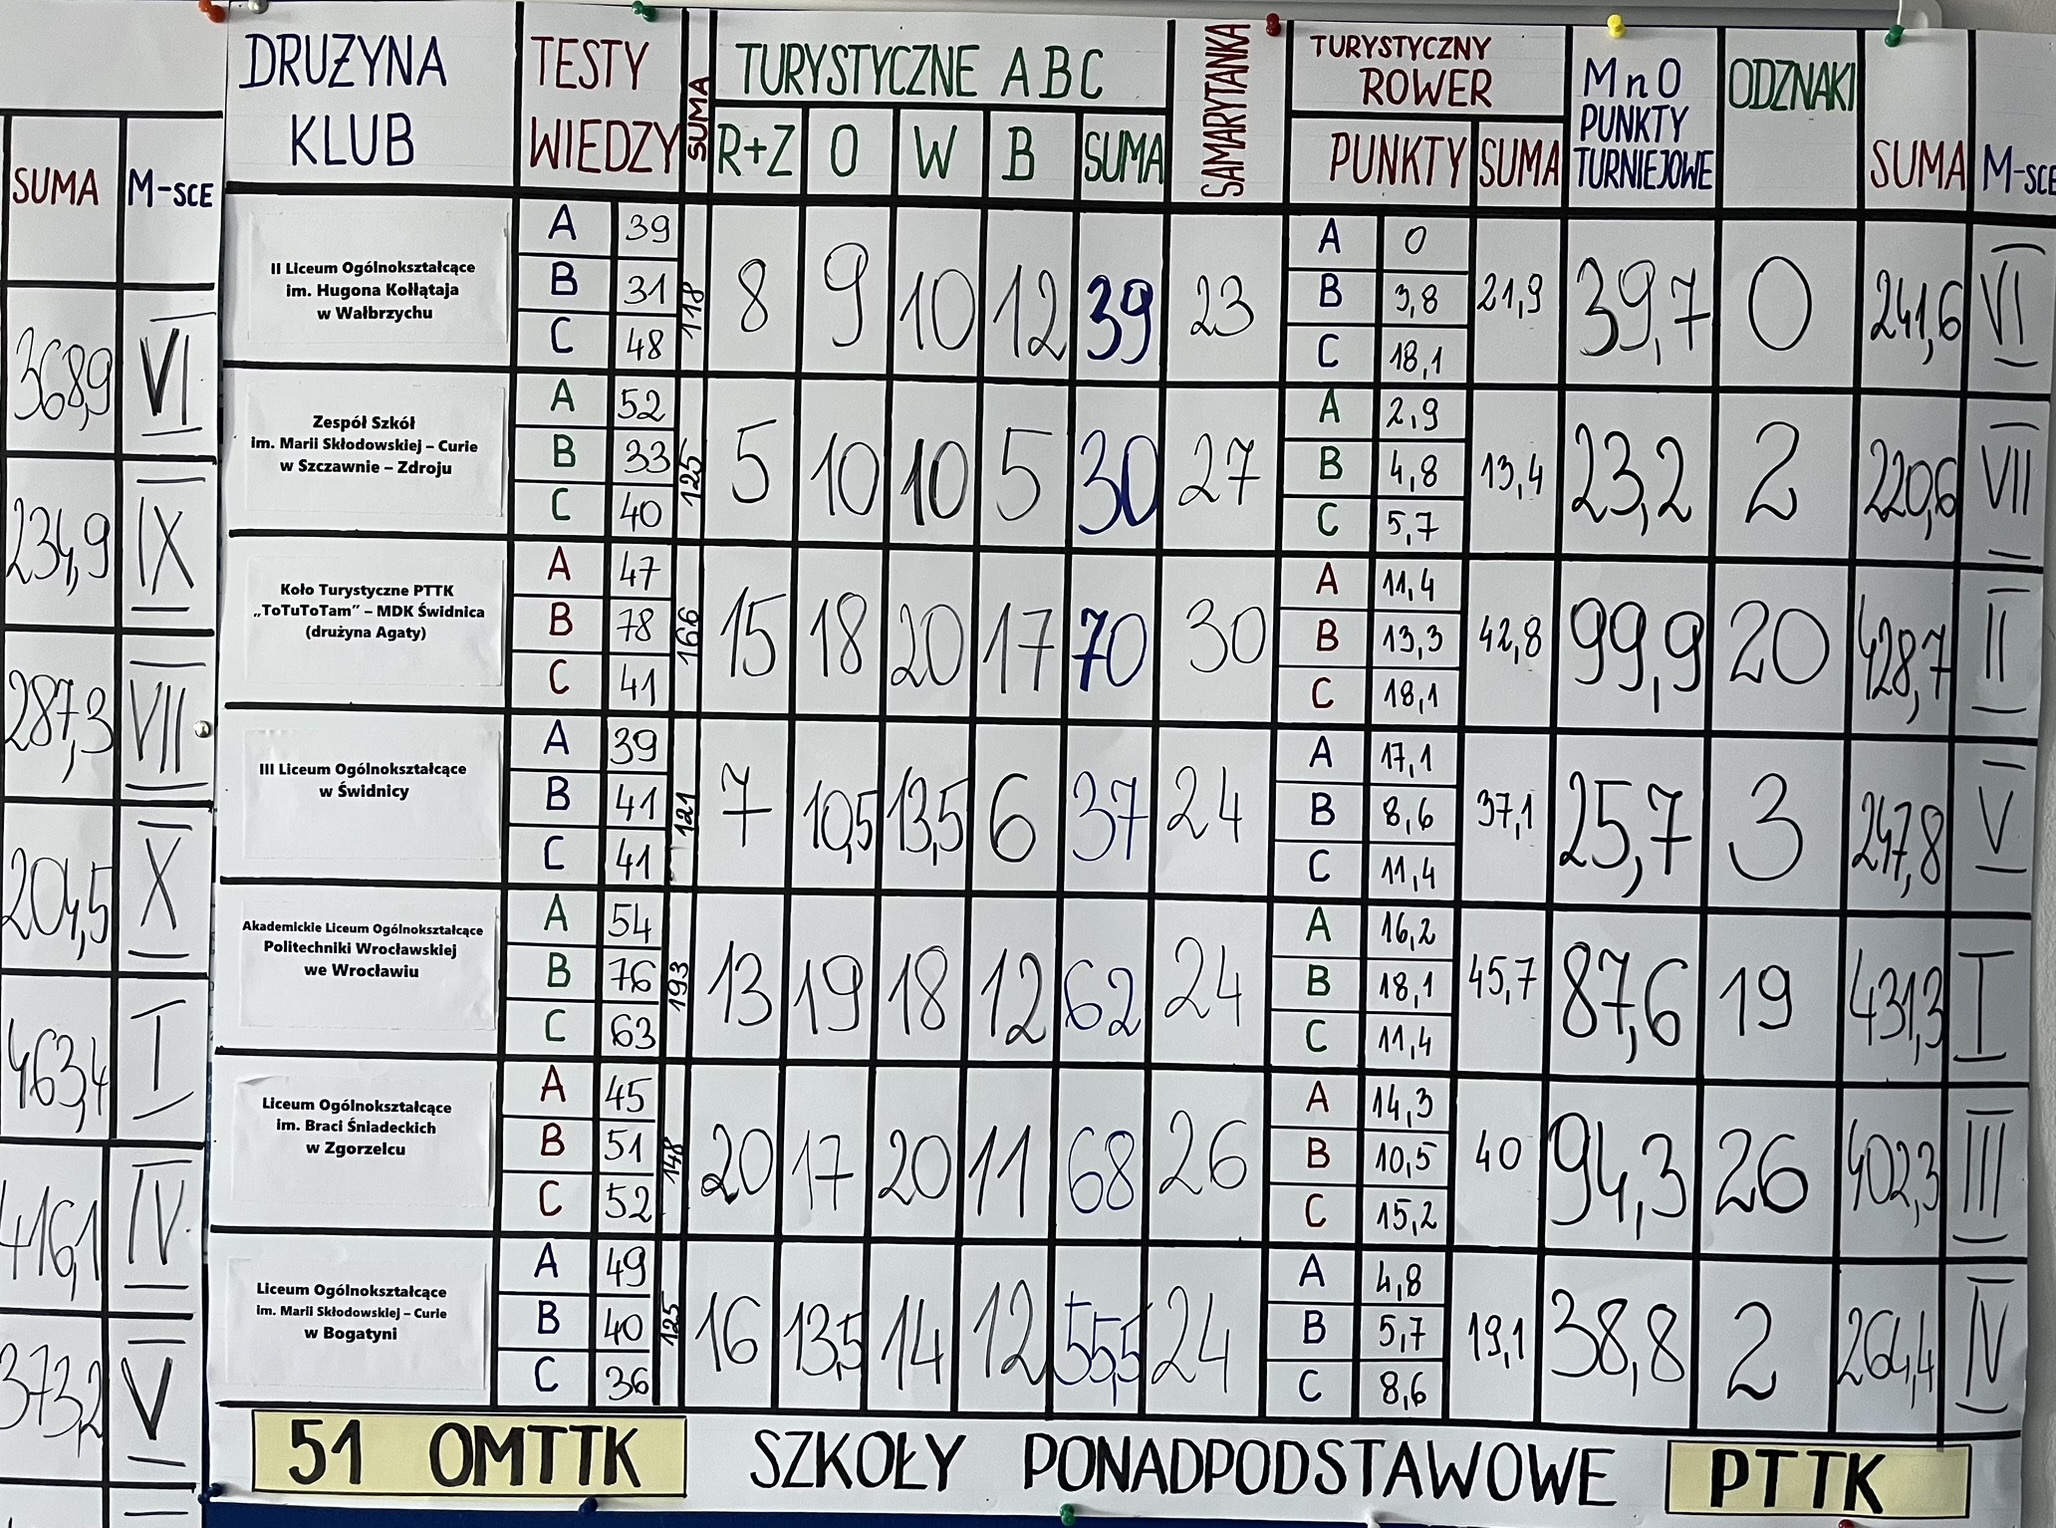 SUMA M-SCE
368,9 VI
234,9 IX
287,3 VII
204,5 X
463,4 I
416,1 IV
373,2 V
DRUŻYNA KLUB TESTY WIEDZY SUMA TURYSTYCZNE ABC SAMARYTANKA TURYSTYCZNY ROWER MnO PUNKTY TURNIEJOWE ODZNAKI SUMA M-SCE
R+Z O W B SUMA PUNKTY SUMA
II Liceum Ogólnokształcące
im. Hugona Kołłątaja
w Wałbrzychu
A 39
B 31
C 48
118 8 9 10 12 39 23
A 0
B 3,8
C 18,1
21,9 39,7 0 241,6 VI
Zespół Szkół
im. Marii Skłodowskiej – Curie
w Szczawnie – Zdroju
A 52
B 33
C 40
125 5 10 10 5 30 27
A 2,9
B 4,8
C 5,7
13,4 23,2 2 220,6 VII
Koło Turystyczne PTTK
„ToTuToTam” – MDK Świdnica
(drużyna Agaty)
A 47
B 78
C 41
166 15 18 20 17 70 30
A 11,4
B 13,3
C 18,1
42,8 99,9 20 428,7 II
III Liceum Ogólnokształcące
w Świdnicy
A 39
B 41
C 41
121 7 10,5 13,5 6 37 24
A 17,1
B 8,6
C 11,4
37,1 25,7 3 247,8 V
Akademickie Liceum Ogólnokształcące
Politechniki Wrocławskiej
we Wrocławiu
A 54
B 76
C 63
193 13 19 18 12 62 24
A 16,2
B 18,1
C 11,4
45,7 87,6 19 431,3 I
Liceum Ogólnokształcące
im. Braci Śniadeckich
w Zgorzelcu
A 45
B 51
C 52
148 20 17 20 11 68 26
A 14,3
B 10,5
C 15,2
40 94,3 26 402,3 III
Liceum Ogólnokształcące
im. Marii Skłodowskiej – Curie
w Bogatyni
A 49
B 40
C 36
125 16 13,5 14 12 55,5 24
A 4,8
B 5,7
C 8,6
19,1 38,8 2 264,4 IV
51 OMTTK SZKOŁY PONADPODSTAWOWE PTTK